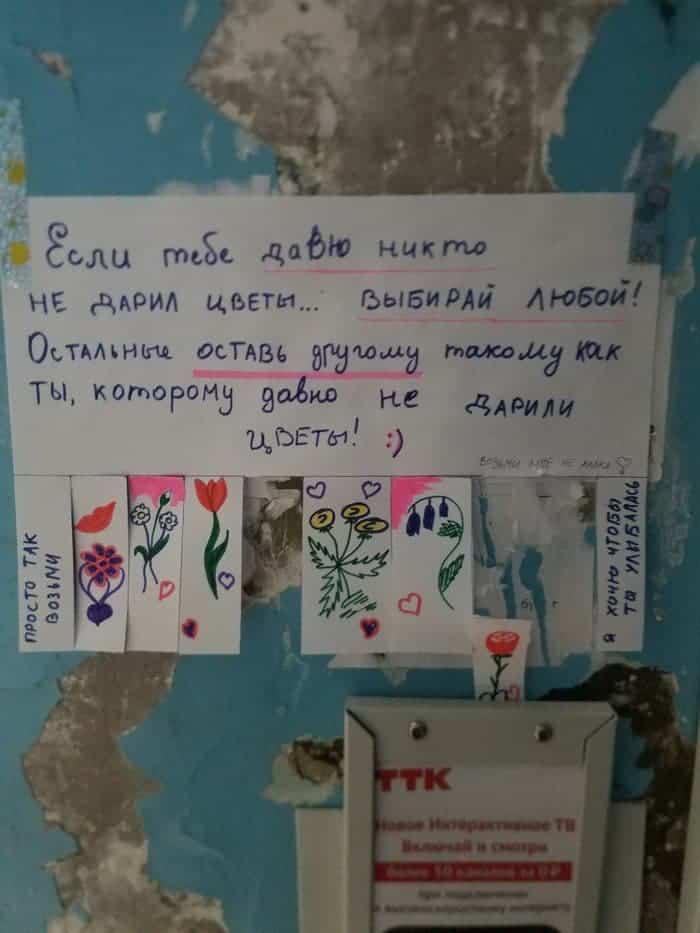 Если тебе давно никто
не дарил цветы... выбирай любой!
Остальные оставь другому такому как
ты, которому давно не дарили
цветы! :)
возьми мне не жалко
просто так
возьми
я хочу чтобы
ты улыбалась
ТТК
Новое Интерактивное ТВ
Включай и смотри
более 50 каналов за 0 ₽
при подключении
к высокоскоростному интернету